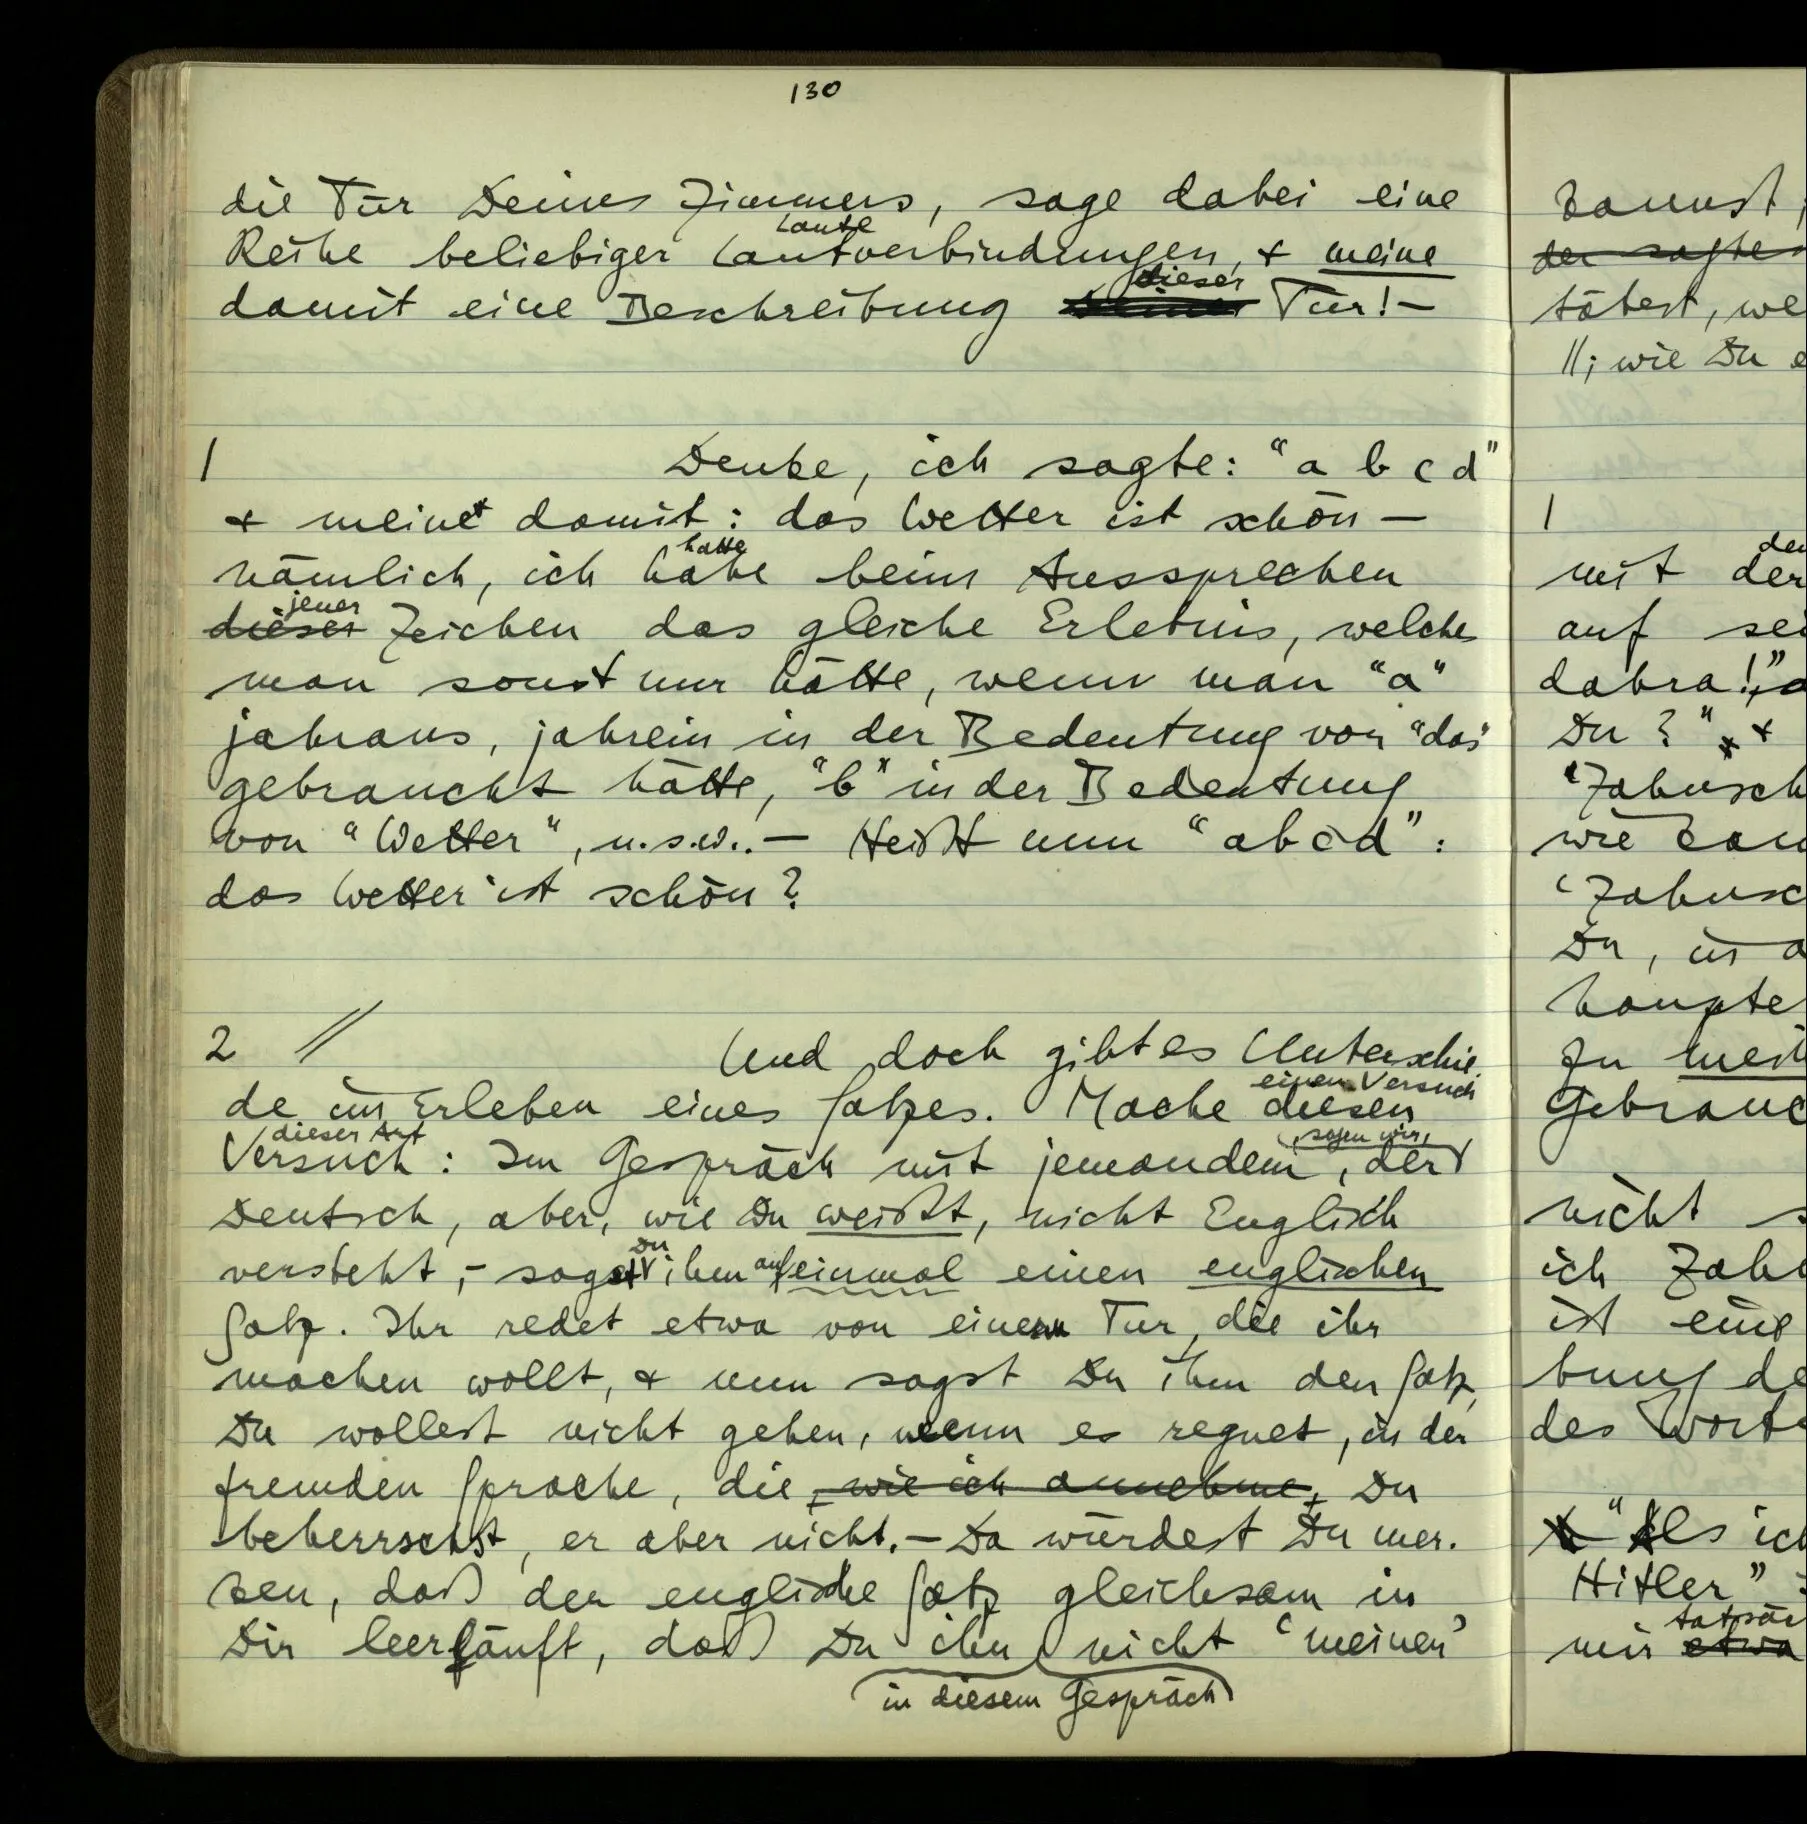 130
die Tür Deines Zimmers, sage dabei eine
Laute
Reihe beliebiger Lautverbindungen, & meine
dieser
damit eine Beschreibung Tür! –
1 Denke, ich sagte: "a b c d"
& meinet damit: das Wetter ist schön –
hatte
nämlich, ich habe beim Aussprechen
jener
dieser Zeichen das gleiche Erlebnis, welches
man sonst nur hätte, wenn man "a"
jahraus, jahrein in der Bedeutung von "das"
gebraucht hätte, "b" in der Bedeutung
von "Wetter", u.s.w.. – Heißt nun "a b c d":
das Wetter ist schön?
2 // Und doch gibt es Unterschie-
de im Erleben eines Satzes. Mache diesen
einen Versuch
dieser Art
Versuch: Im Gespräch mit jemandem, der
, sagen wir,
Deutsch, aber, wie Du weißt, nicht Englisch
Du
versteht, – sagst ihm auf einmal einen englischen
Satz. Ihr redet etwa von einer Tur, die ihr
machen wollt, & nun sagst Du ihm den Satz,
Du wollest nicht gehen, wenn es regnet, in der
fremden Sprache, die , wie ich annehme, Du
beherrschst, er aber nicht. – Da würdest Du mer-
ken, daß der englische Satz gleichsam in
Dir leerläuft, daß Du ihn nicht 'meinen'
in diesem Gespräch
kannst,
der sagte
tätest, we
//; wie Du e
1
den
mit der
auf sei
dabra!"
Du?" &
"Zahnsch
wie kan
'Zahnsc
Du, in a
haupte
zu mein
Gebrauc
nicht s
ich Zah
ist eine
bung de
des Worte
"Als ich
Hitler"
tatsäc
mir etwa